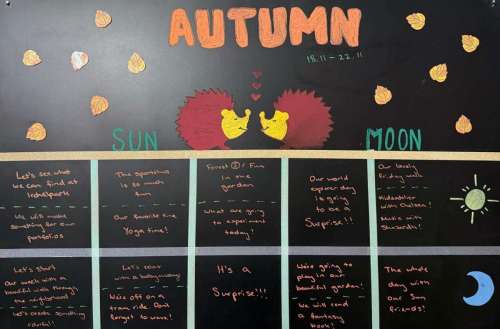 AUTUMN
18.11 - 22.11
SUN
MOON
Let's see what
we can find at
We will make
something for our
portfolios
The sportshus
is so much
fun
Our favorite time
Yoga time!
Forest / Fun
in the
garden
What are going
to experiment
today!
Our world
explorer day
is going
to be a
Surprise!!!
Our lovely
Friday walk
with Chelsea!
Music with
Let's start
our week with a
beautiful walk through
the neighborhood
Let's create something
colorful!
Let's start
with a
We're off on a
tram ride. Don't
forget to wave!
It's a
Surprise!!!
We're going to
play in our
beautiful garden!
We will read
a fantasy
book!
The whole
day with
our Sun
friends!